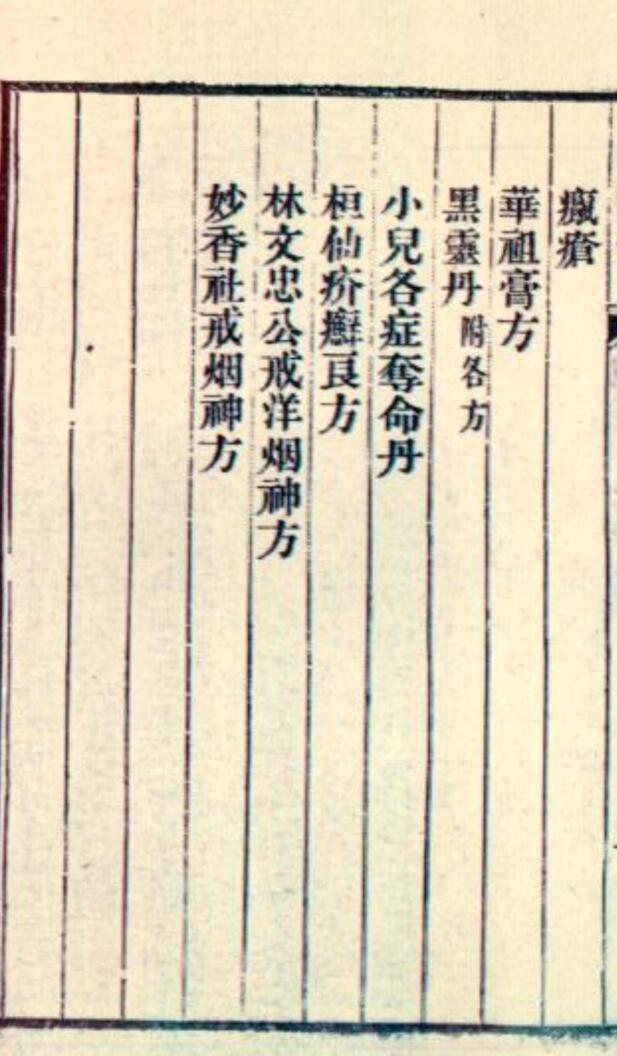 瘋瘡
華祖膏方
黑靈丹附各方
小兒各症奪命丹
桓仙疥癬良方
林文忠公戒洋烟神方
妙香社戒烟神方